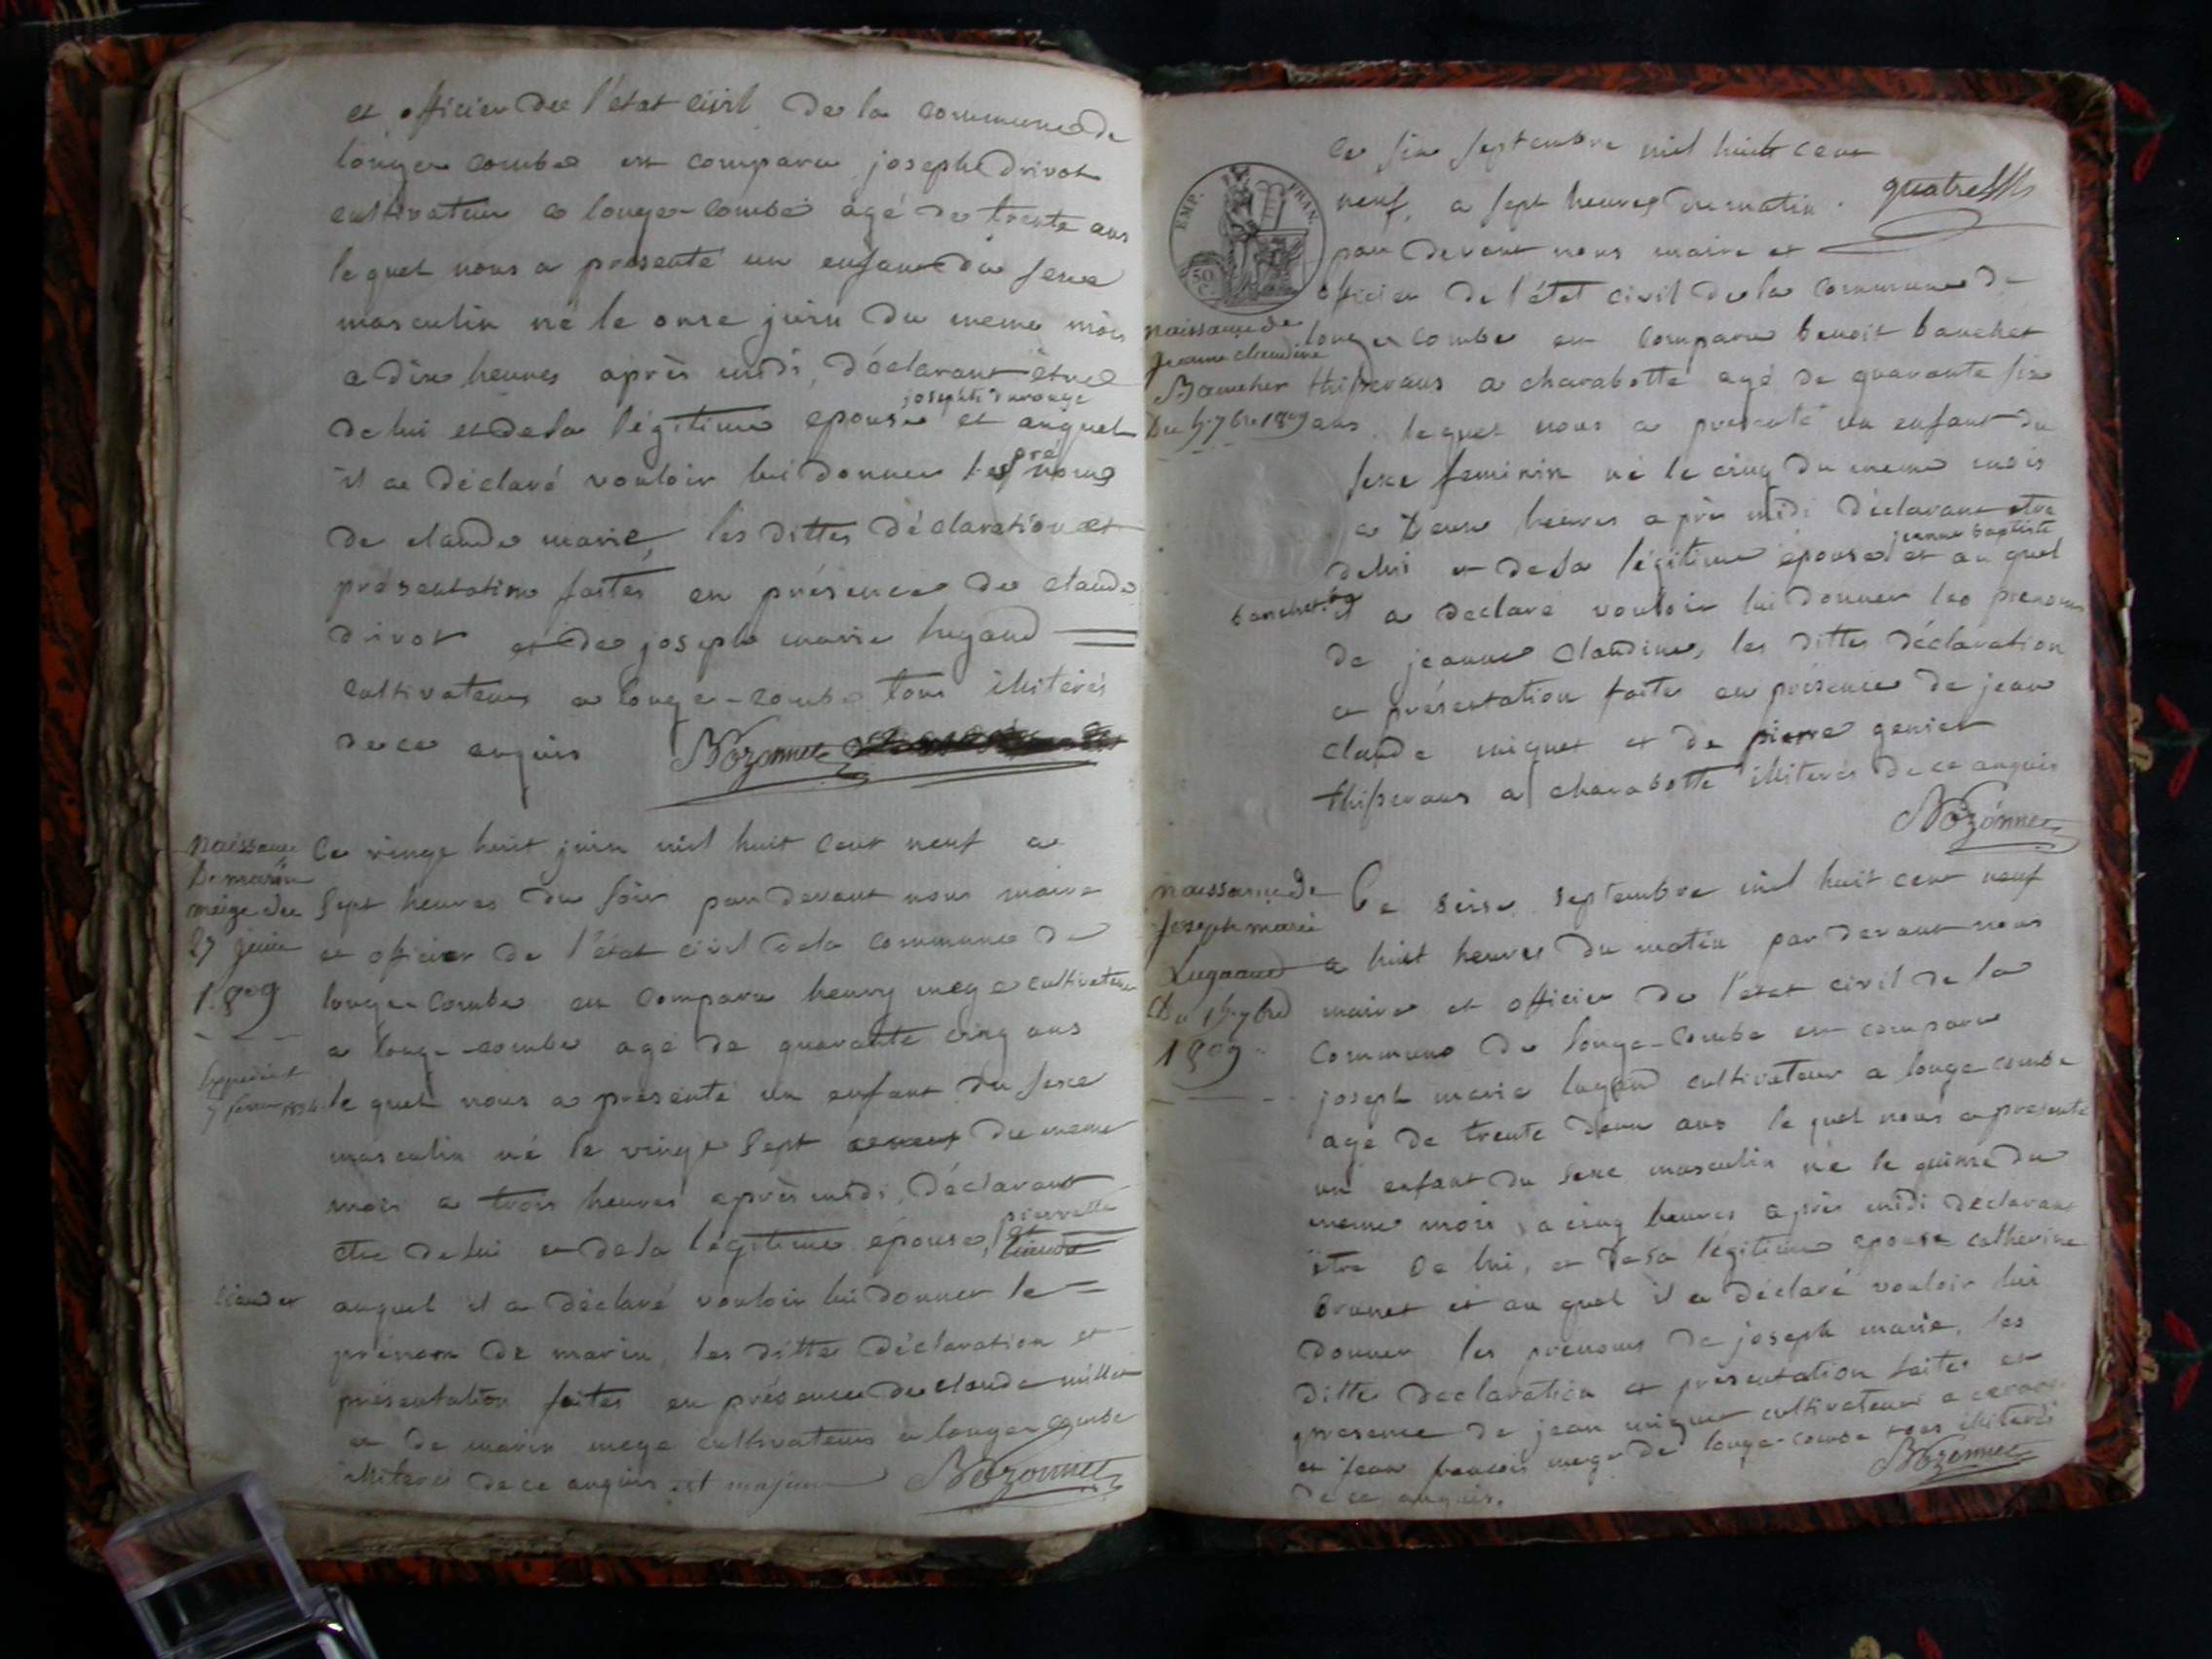 et officier de l'état civil de la commune de
longe combe est comparu joseph drivot
cultivateur a longe-combe agé de trente ans
lequel nous a présenté un enfant du sexe
masculin né le onze juin du meme mois
a dix heures après midi, déclarant être
josephte
de lui et de sa légitime epouse et auquel
pré
il a déclaré vouloir lui donner les noms
de claude marie, les dittes déclaration et
présentation faites en présence de claude
drivot et de joseph marie lugand
cultivateurs a longe-combe tous illiterés
de ce enquis Bozonnet
naissance
De marin
meige du
27 juin
1809
Le vingt huit juin mil huit cent neuf a
sept heures du soir par devant nous maire
et oficier de l'état civil de la commune de
longe-combe est comparu henry mege cultivateur
a longe-combe agé de quarante cinq ans
le quel nous a présenté un enfant du sexe
masculin né le vingt sept du meme
mois a trois heures après midi, déclarant
pierrette
etre de lui et de sa légitime épouse, et
auquel il a déclaré vouloir lui donner le
prénom de marin, les dittes déclaration et
présentation faites en présence de claude millet
et de marin mege cultivateurs a longe combe
illiterés de ce enquis et majeurs Bozonnet
EMP. FRAN.
50 C.
Le six septembre mil huit cent
neuf, a sept heures du matin. quatre
par devant nous maire et
officier de l'état civil de la commune de
naissance de
Jeanne claudine
Bancher
Du 5 7bre 1809
longe combe est comparu benoit banchet
thisserans a charabotte agé de quarante six
ans, lequel nous a présenté un enfant du
sexe feminin né le cinq du meme mois
a deux heures après midi déclarant etre
jeanne baptiste
de lui et de sa légitime épouse et au quel
banchet
il a déclaré vouloir lui donner les prenoms
de jeanne claudine, les dittes déclaration
et présentation faites en présence de jean
claude miguet et de pierre genier
thisserans a charabotte illiterés de ce enquis
Bozonnet
naissance de
Joseph marie
Lugand
Du 15 7bre
1809
Le seise septembre mil huit cent neuf
a huit heures du matin par devant nous
maire et officier de l'état civil de la
commune de longe-combe est comparu
joseph marie lugand cultivateur a longe combe
agé de trente deux ans le quel nous a présenté
un enfant du sexe masculin né le quinse du
meme mois a cinq heures après midi déclarant
etre de lui, et de sa légitime epouse catherine
brunet et au quel il a déclaré vouloir lui
donner les prenoms de joseph marie, les
dittes declaration et présentation faites en
presence de jean miguet cultivateur a
et jean francois mege de longe-combe tous illiterés
de ce enquis. Bozonnet